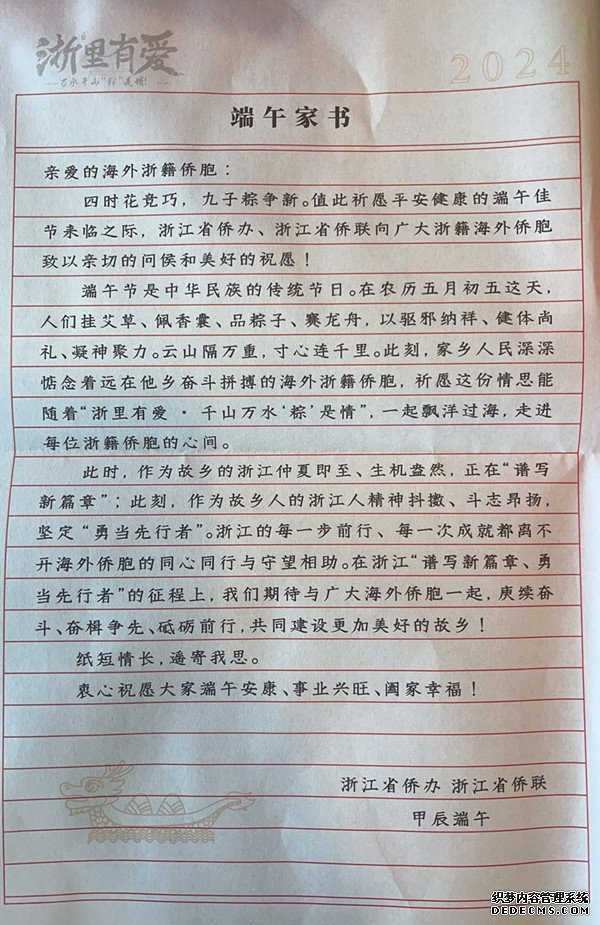 浙里有爱
万水千山"粽"是情!
2024
端午家书
亲爱的海外浙籍侨胞：
四时花竞巧，九子粽争新。值此祈愿平安健康的端午佳
节来临之际，浙江省侨办、浙江省侨联向广大浙籍海外侨胞
致以亲切的问侯和美好的祝愿！
端午节是中华民族的传统节日。在农历五月初五这天，
人们挂艾草、佩香囊、品粽子、赛龙舟，以驱邪纳祥、健体尚
礼、凝神聚力。云山隔万重，寸心连千里。此刻，家乡人民深深
惦念着远在他乡奋斗拼搏的海外浙籍侨胞，祈愿这份情思能
随着“浙里有爱·千山万水‘粽’是情”，一起飘洋过海，走进
每位浙籍侨胞的心间。
此时，作为故乡的浙江仲夏即至、生机盎然，正在“谱写
新篇章”；此刻，作为故乡人的浙江人精神抖擞、斗志昂扬，
坚定“勇当先行者”。浙江的每一步前行、每一次成就都离不
开海外侨胞的同心同行与守望相助。在浙江“谱写新篇章、勇
当先行者”的征程上，我们期待与广大海外侨胞一起，庚续奋
斗、奋楫争先、砥砺前行，共同建设更加美好的故乡！
纸短情长，遥寄我思。
衷心祝愿大家端午安康、事业兴旺、阖家幸福！
浙江省侨办 浙江省侨联
甲辰端午
织梦内容管理系统
DEDECMS.COM